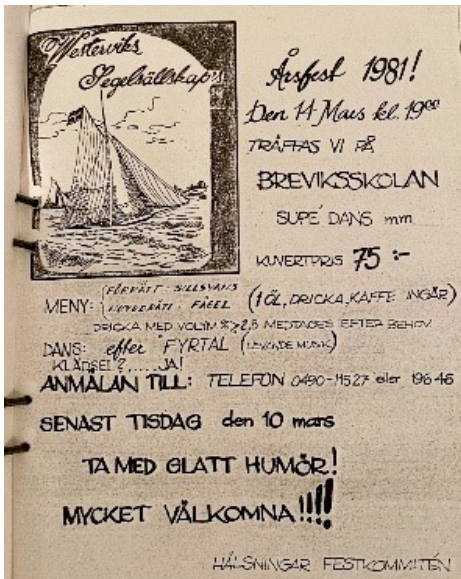 Westerviks
Segelsällskap's
Årsfest 1981!
Den 14 Mars kl. 19⁰⁰
TRÄFFAS VI PÅ
BREVIKSSKOLAN
SUPÉ DANS mm
KUVERTPRIS 75:-
MENY: FÖRRÄTT - SILLSVANS
HUVUDRÄTT - FÅGEL (1 ÖL, DRICKA, KAFFE INGÅR)
DRICKA MED VOLYM % > 2,8 MEDTAGES EFTER BEHOV
DANS: efter FYRTAL (LEVANDE MUSIK)
KLÄDSEL?.....JA!
ANMÄLAN TILL: TELEFON 0490-11527 eller 19646
SENAST TISDAG den 10 mars
TA MED GLATT HUMÖR!
MYCKET VÄLKOMNA!!!!
HÄLSNINGAR FESTKOMMITÉN